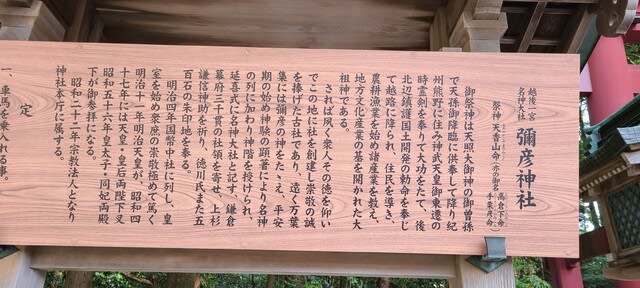 越後一宮
名神大社
彌彦神社
祭神 天香山命
亦の御名
高倉下命
手栗彦命
御祭神は天照大御神の御曽孫
で天孫御降臨に供奉して降り紀
州熊野に住み神武天皇御東遷の
時霊剣を奉って大功をたて、後
北辺鎮護国土開発の勅命を奉じ
て越路に降られ、住民を導き、
農耕漁業を始め諸産業を教え、
地方文化産業の基を開かれた大
祖神である。
されば夙く衆人その徳を仰い
でこの地に社を創建し崇敬の誠
を捧げた古社であり、遠く万葉
集には彌彦の神をたゝえ、平安
期の始め神験の顕著により名神
の列に加わり神階を授けられ、
延喜式に名神大社と記す、鎌倉
幕府三千貫の社領を寄せ、上杉
謙信神助を祈り、徳川氏また五
百石の朱印地を奉る。
明治四年国幣中社に列し、皇
室を始め衆庶の崇敬極めて篤く
明治十一年明治天皇が、昭和四
十七年には天皇・皇后両陛下又
昭和五十六年皇太子・同妃両殿
下が御参拝になる。
昭和二十二年宗教法人となり
神社本庁に属する。
定
一、車馬を乗入れる事。